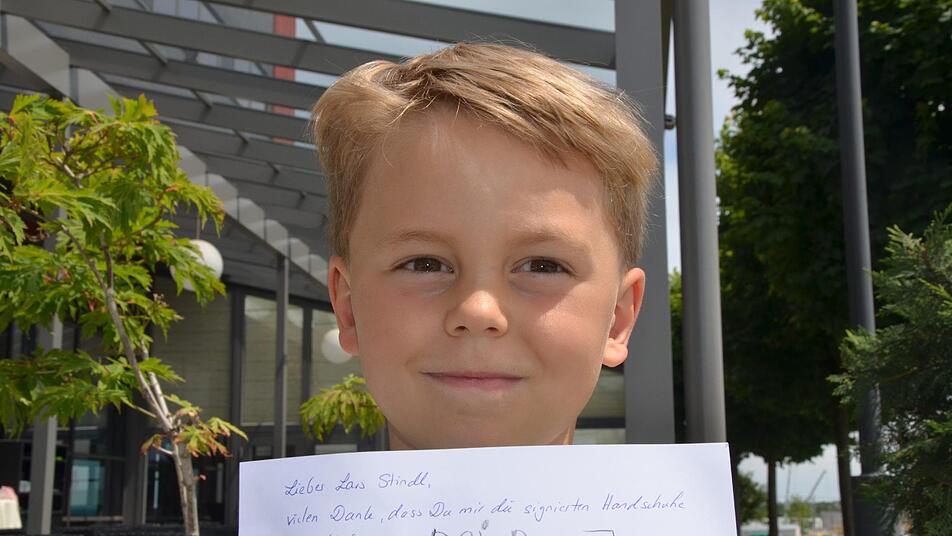 Lieber Lars Stindl,
vielen Dank, dass Du mir die signierten Handschuhe